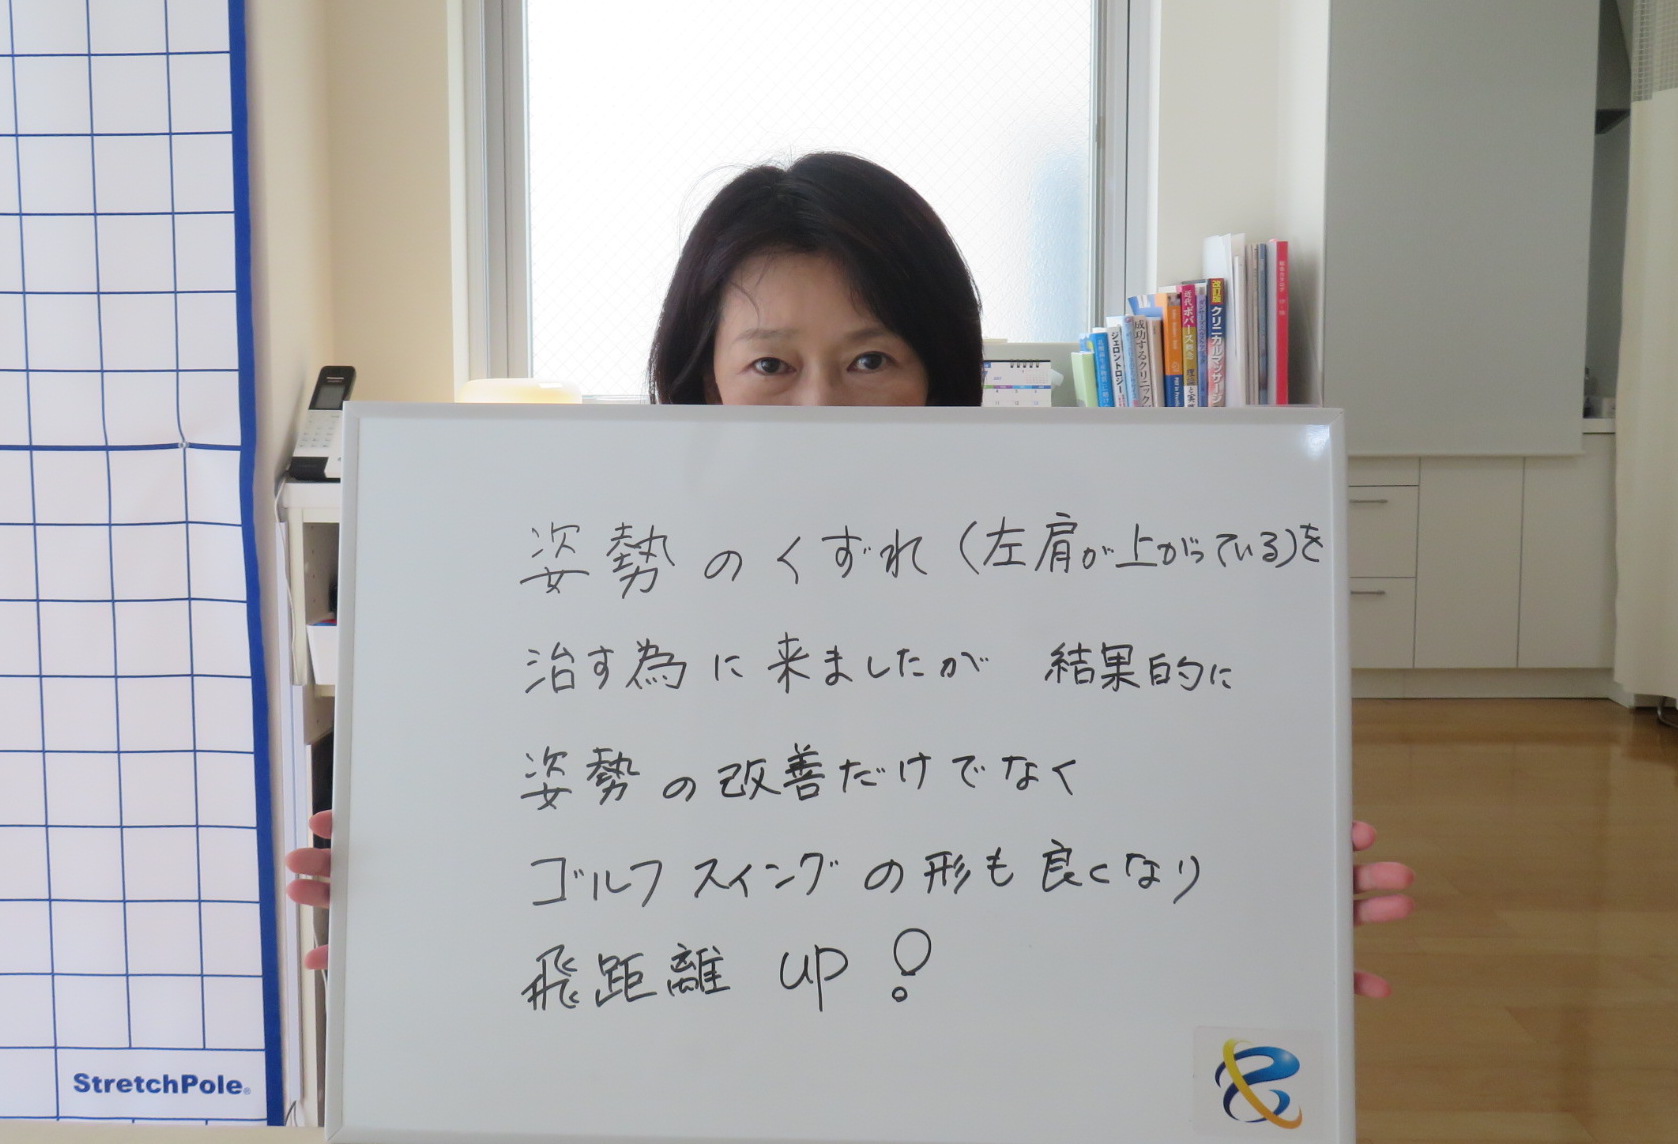 姿勢のくずれ(左肩が上がっている)を
治す為に来ましたが 結果的に
姿勢の改善だけでなく
ゴルフスイングの形も良くなり
飛距離 UP!
StretchPole
ジェロントロジー
成功するクリニック
改訂版 クリニカルマッサージ